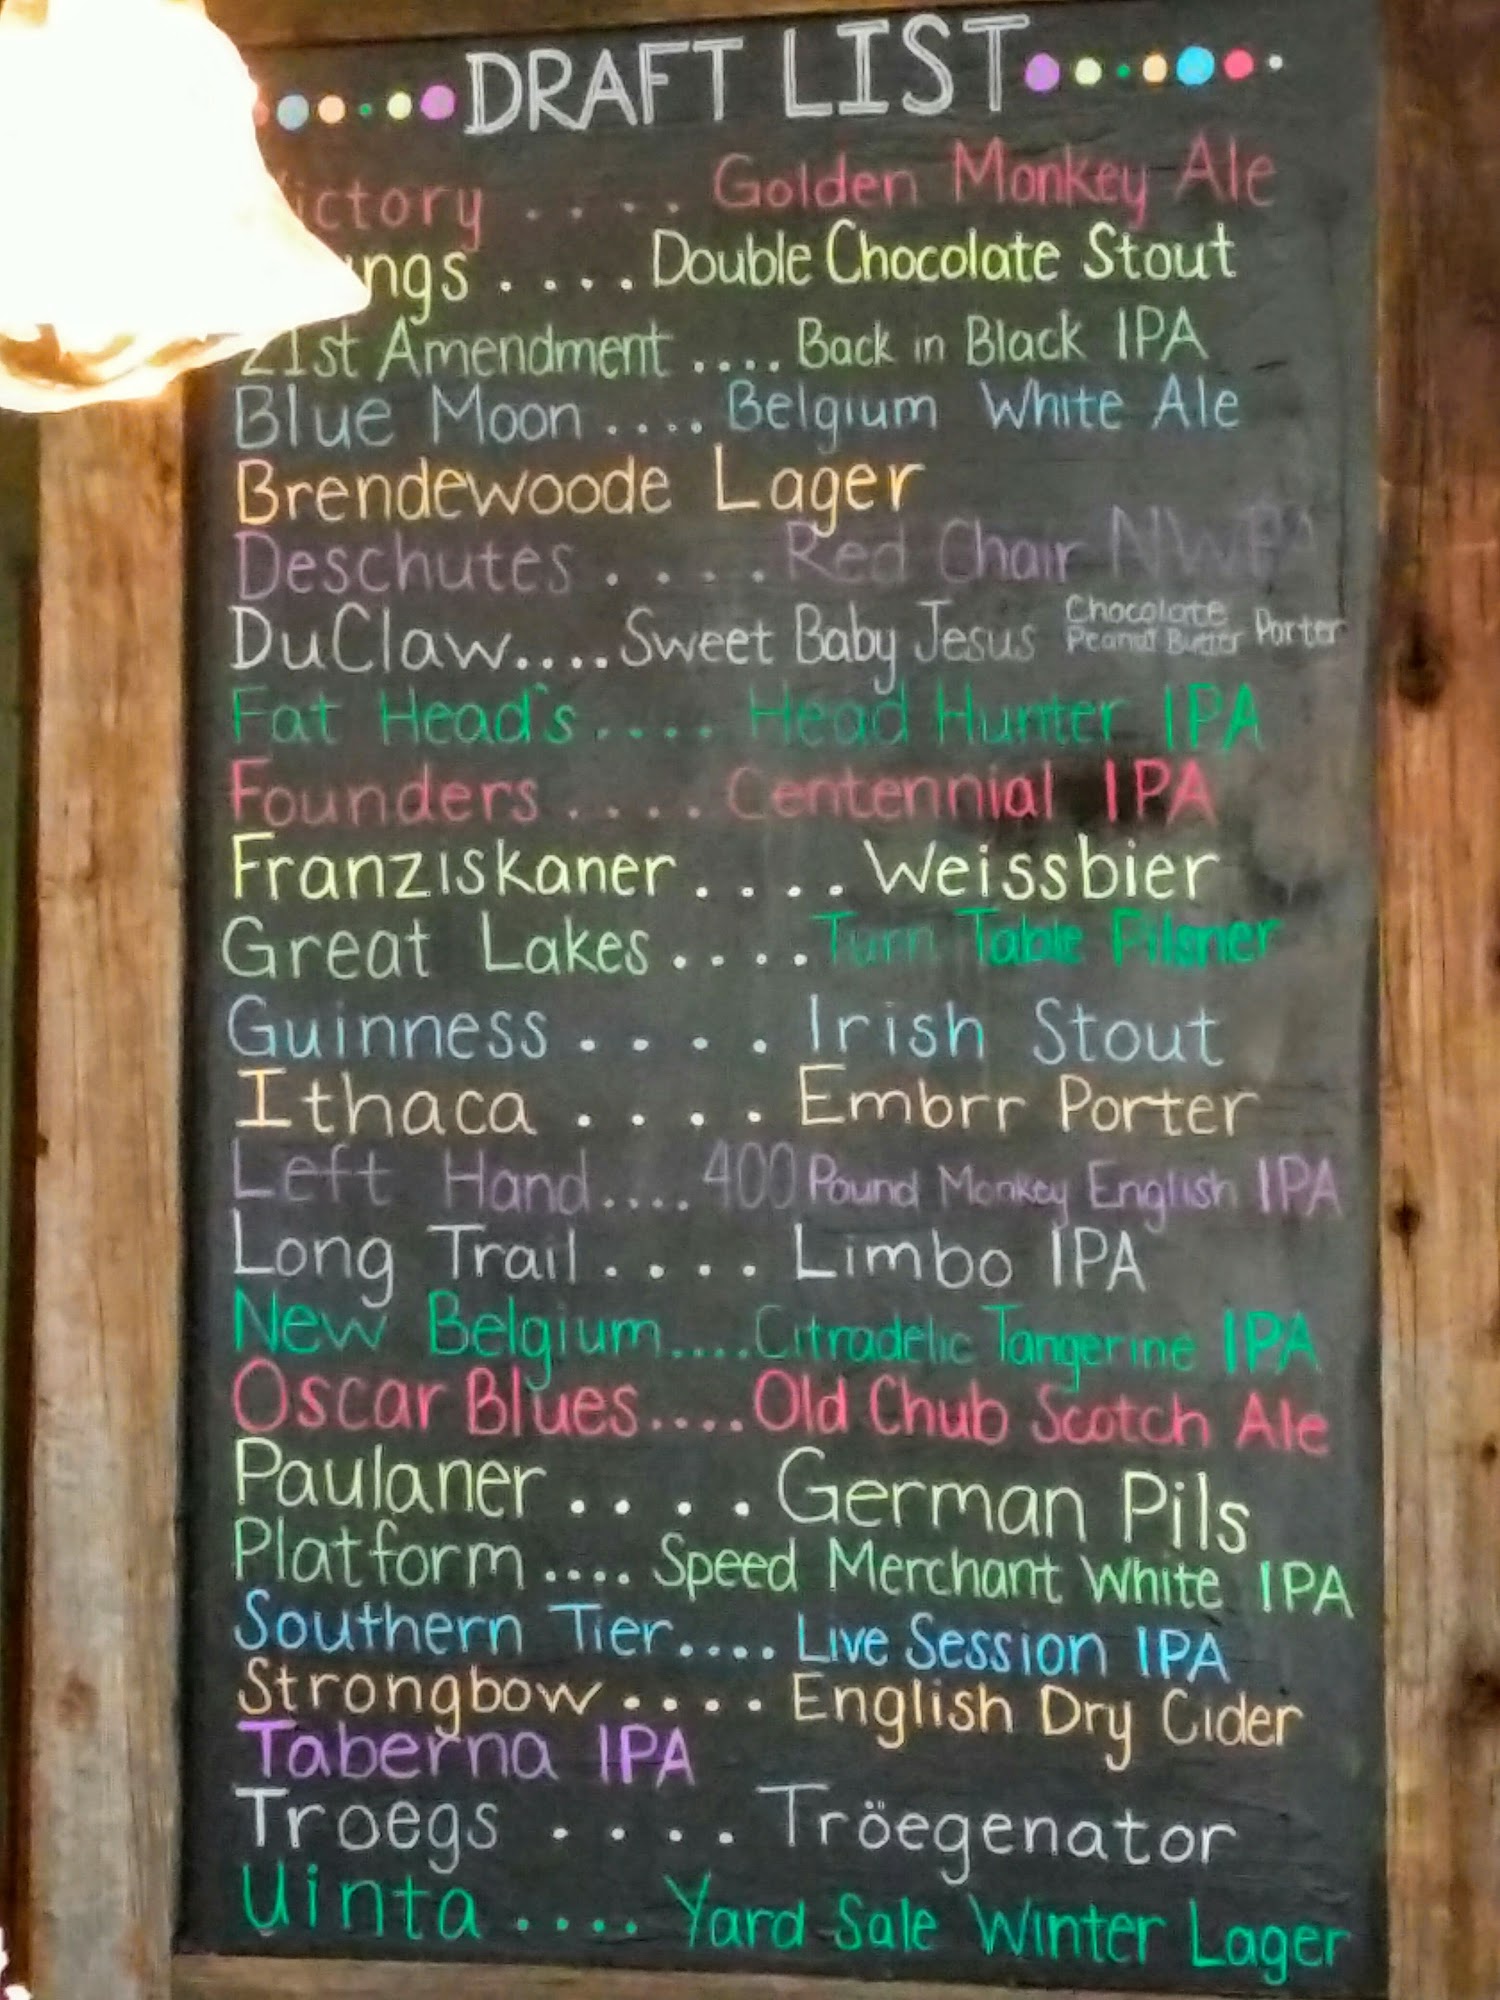 DRAFT LIST
ictory .... Golden Monkey Ale
ngs .... Double Chocolate Stout
21st Amendment .... Back in Black IPA
Blue Moon .... Belgium White Ale
Brendewoode Lager
Deschutes .... Red Chair NWPA
DuClaw.... Sweet Baby Jesus Chocolate Peanut Butter Porter
Fat Head's .... Head Hunter IPA
Founders .... Centennial IPA
Franziskaner .... Weissbier
Great Lakes .... Turn Table Pilsner
Guinness .... Irish Stout
Ithaca .... Embrr Porter
Left Hand.... 400 Pound Monkey English IPA
Long Trail .... Limbo IPA
New Belgium.... Citradelic Tangerine IPA
Oscar Blues.... Old Chub Scotch Ale
Paulaner .... German Pils
Platform .... Speed Merchant White IPA
Southern Tier.... Live Session IPA
Strongbow .... English Dry Cider
Taberna IPA
Troegs .... Tröegenator
Uinta .... Yard Sale Winter Lager